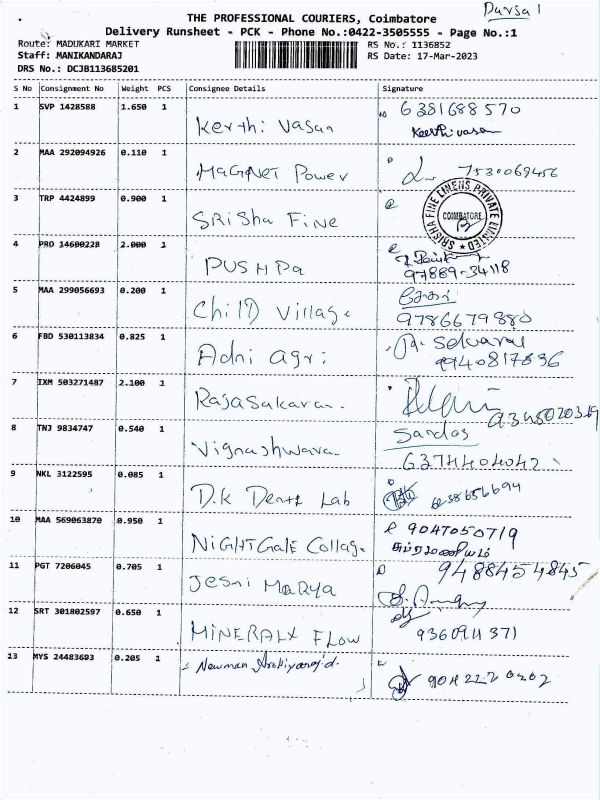 Darsa 1
THE PROFESSIONAL COURIERS, Coimbatore
Delivery Runsheet - PCK - Phone No.:0422-3505555 - Page No.:1
Route: MADUKARI MARKET RS No.: 1136852
Staff: MANIKANDARAJ RS Date: 17-Mar-2023
DRS No.: DCJB113685201
S No Consignment No Weight PCS Consignee Details Signature
1 SVP 1428588 1.650 1 Kerthi Vasan 6381688570
Keerthivasan
2 MAA 292094926 0.110 1 MaGNET Power 7530069456
3 TRP 4424899 0.900 1 SRiSha FiNE
SRISHA FINE LINENS PRIVATE LIMITED
COIMBATORE
4 PRO 14600228 2.000 1 PUSHPa
97889-34118
5 MAA 299056693 0.200 1 ChilD Village சேகர்
9786679880
6 FBD 530113834 0.825 1 Adni agri Selvaraj
9940817836
7 IXM 503271487 2.100 1 Rajasakaran.
8 TNJ 9834747 0.540 1 Vignashwara Sardas
6374404042
9 NKL 3122595 0.085 1 D.K Dental Lab
10 MAA 569063870 0.950 1 NiGHTGalE Collage 9047050719
சுப்ரமணியம்
11 PGT 7206045 0.705 1 Jesni MaRya 9488454845
12 SRT 301802597 0.650 1 MiNERALX FLOW
9360911371
13 MYS 24483693 0.205 1 Newman Arokiyaraj.d.